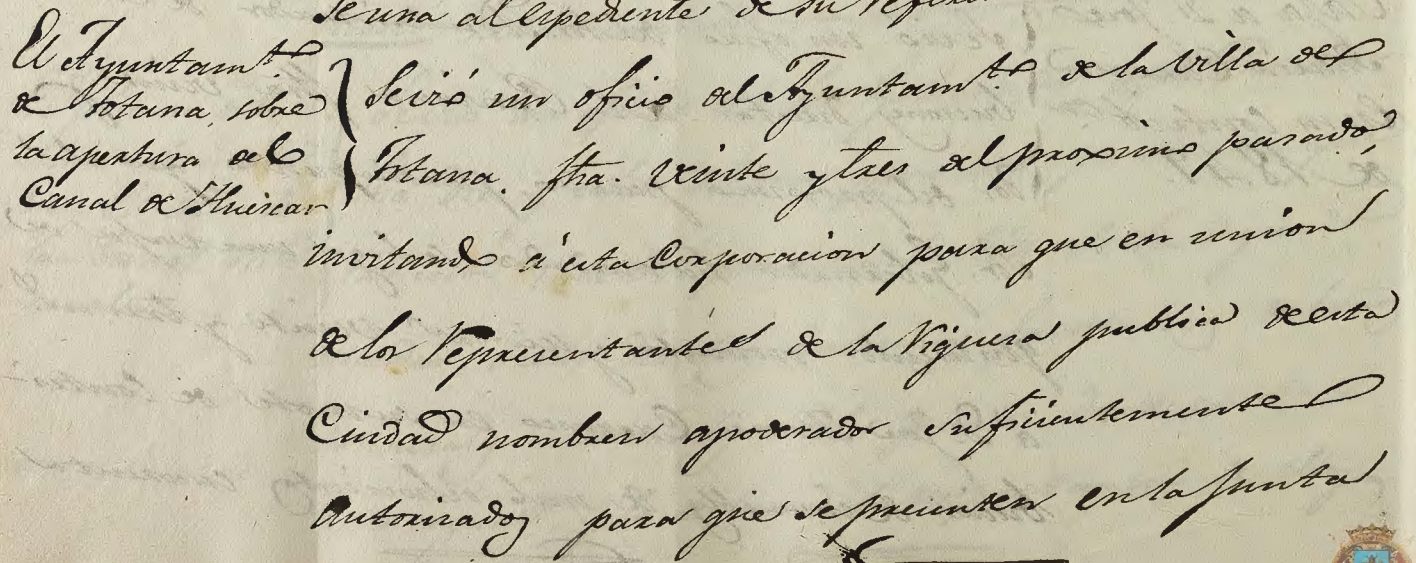 se una al expediente de su refere
El Ayuntamto.
de Totana, sobre
la apertura del
Canal de Huescar
Se vió un oficio del Ayuntamto. de la Villa de
Totana, fha. veinte y tres del proximo pasado,
invitando á esta Corporacion para que en union
de los Representantes de la Riquesa publica de esta
Ciudad nombren apoderados suficientemente
autorizados para que se presenten en la Junta